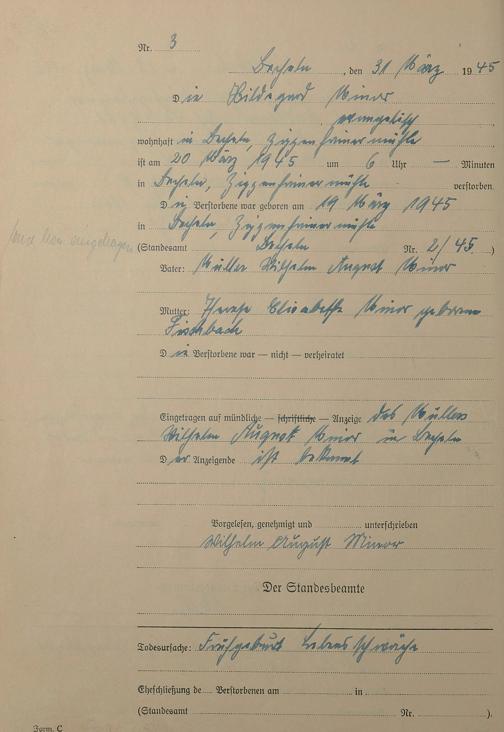 Nr. 3
Becheln, den 31 März 1945
Die Hildegard Minor
evangelisch
wohnhaft in Becheln, Zyzzenheimermühle
ist am 20 März 1945 um 6 Uhr — Minuten
in Becheln, verstorben.
Die Verstorbene war geboren am 19 März 1945
in Becheln,
(Standesamt Becheln Nr. 2/45.)
Vater: Müller Wilhelm August Minor
Mutter: Therese Elisabeth Minor geborene
Fischbach
Die Verstorbene war — nicht — verheiratet
Eingetragen auf mündliche — schriftliche — Anzeige des Müllers
Wilhelm August Minor in Becheln
Der Anzeigende ist bekannt
Vorgelesen, genehmigt und unterschrieben
Wilhelm August Minor
Der Standesbeamte
Todesursache: Frühgeburt Lebensschwäche
Eheschließung de Verstorbenen am in
(Standesamt Nr. ).
Form. C